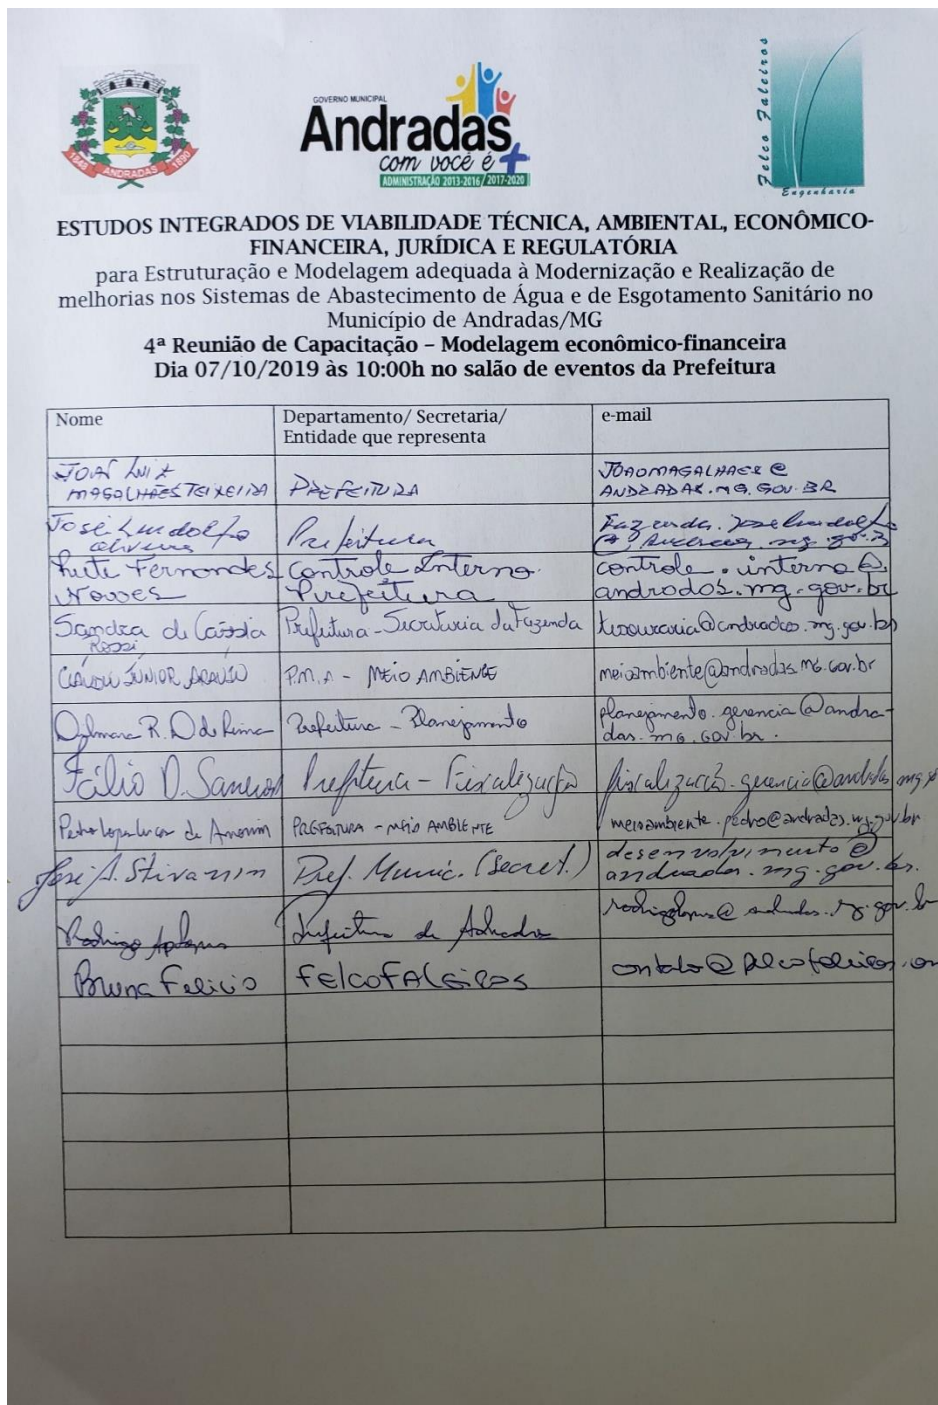 1848 ANDRADAS 1890
GOVERNO MUNICIPAL
Andradas
com você é +
ADMINISTRAÇÃO 2013-2016 / 2017-2020
Felco Faleiros
Engenharia
ESTUDOS INTEGRADOS DE VIABILIDADE TÉCNICA, AMBIENTAL, ECONÔMICO-
FINANCEIRA, JURÍDICA E REGULATÓRIA
para Estruturação e Modelagem adequada à Modernização e Realização de
melhorias nos Sistemas de Abastecimento de Água e de Esgotamento Sanitário no
Município de Andradas/MG
4ª Reunião de Capacitação – Modelagem econômico-financeira
Dia 07/10/2019 às 10:00h no salão de eventos da Prefeitura
Nome
Departamento/ Secretaria/
Entidade que representa
e-mail
JOÃO LUIZ
MAGALHÃES TEIXEIRA
PREFEITURA
JOAOMAGALHAES@
ANDRADAS.MG.GOV.BR
José Lindolfo
Oliveira
Prefeitura
Fernandes
Novaes
Controle Interno
Prefeitura
controle.interno@
andradas.mg.gov.br
Sandra de Cássia
Rossi
Prefeitura - Secretaria da Fazenda
tesouraria@andradas.mg.gov.br
JÚNIOR ARAÚJO
P.M.A - MEIO AMBIENTE
meioambiente@andradas.MG.Gov.br
R. D de Lima
Prefeitura - Planejamento
planejamento.gerencia@andra-
das.mg.gov.br.
Fálio D. Santos
Prefeitura - Fiscalização
fiscalização.gerencia@andradas.mg.g
Pedro de Amorim
PREFEITURA - MEIO AMBIENTE
meioambiente.pedro@andradas.mg.gov.br
José A. Stivanin
Pref. Munic. (Secret.)
desenvolvimento@
andradas.mg.gov.br.
Rodrigo
Prefeitura de Andradas
Bruna Felicio
FELCOFALEIROS
contato@felcofaleiros.com